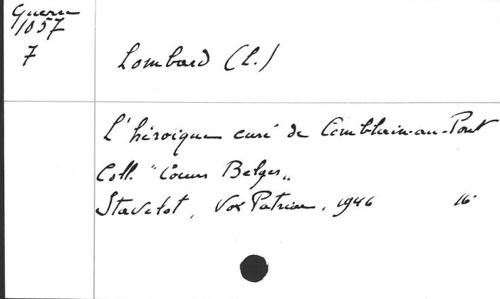 Guerre
1057
7
Lombard (L.)
L'héroïque curé de Comblain-au-Pont
Coll. "Cœurs Belges„
Stavelot, Vox Patriae, 1946 16°